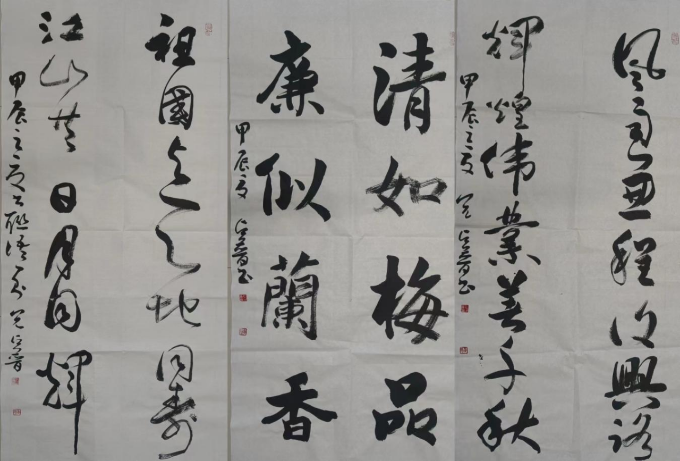 风雨兼程復興路
輝煌伟業千秋
甲辰之夏
清如梅品
廉似蘭香
甲辰夏
祖國与天地同壽
江山共日月同輝
甲辰之夏